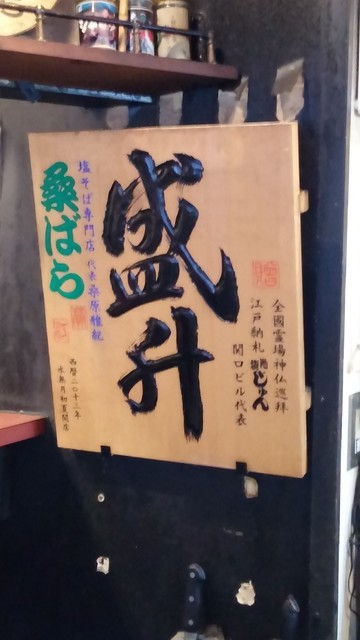 全國霊場神仏巡拝
江戸納札
じゅん
関口ビル代表
盛升
塩そば専門店 代表桑原
桑ばら
西暦二〇十三年
水無月初夏開店